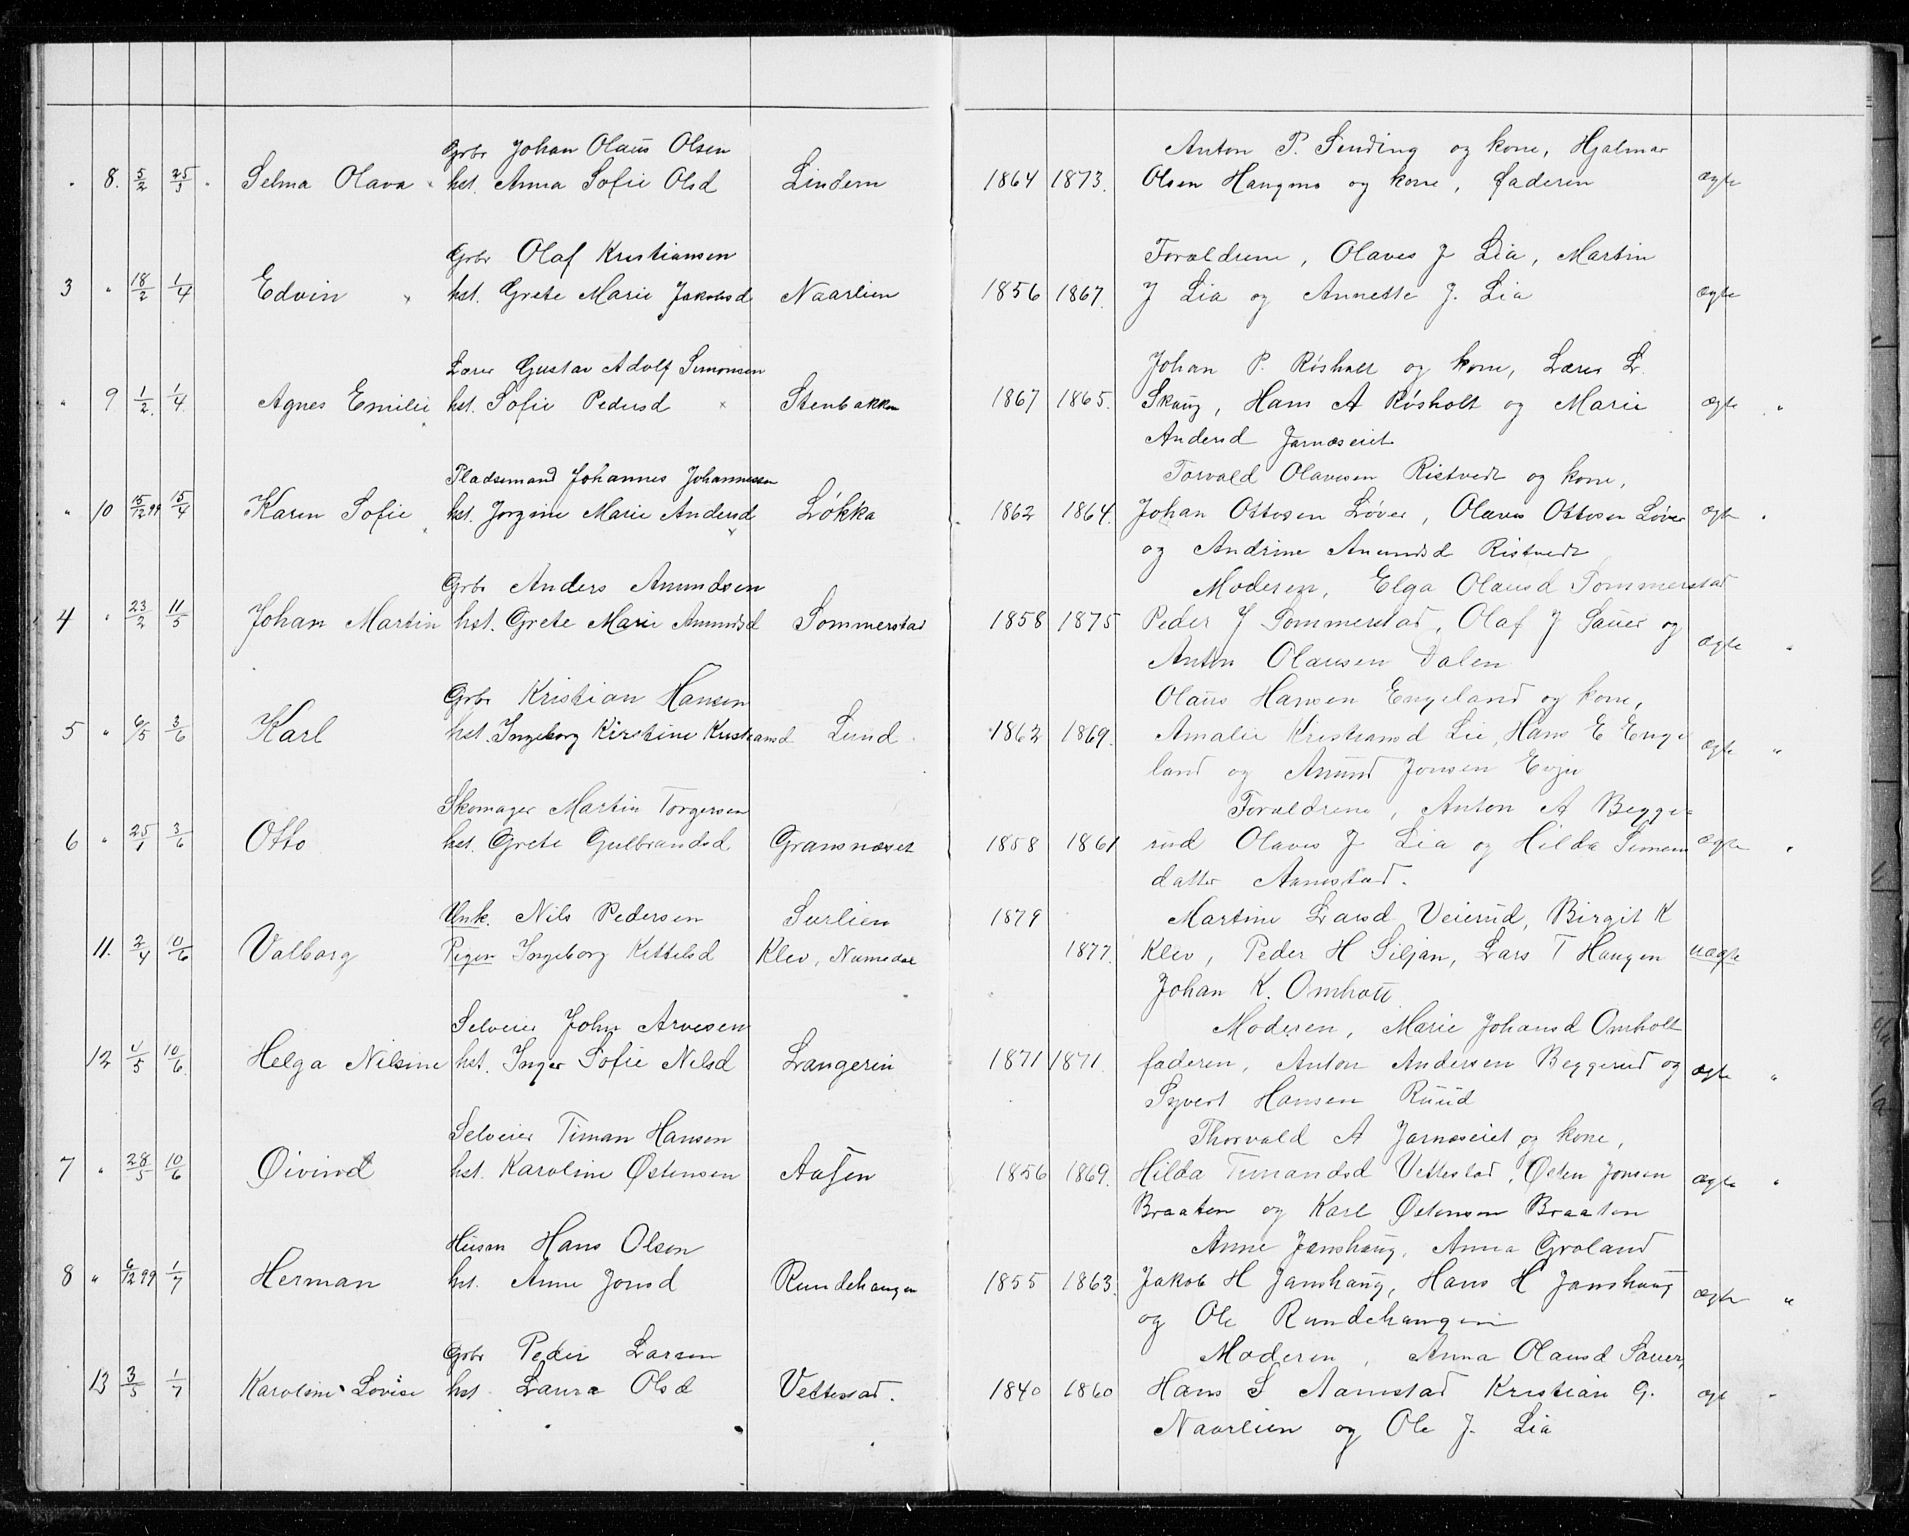 Grbr Johan Olaus Olsen Anton P. Sinding og kone, Hjalmar
8. 5/2 25/3 Selma Olava hst. Anna Sofie Olsd Lindem 1864 1873. Olsen Haugmo og kone, faderen ægte
Grbr Olaf Kristiansen Forældrene, Olaves J Lia, Martin
3 " 18/2 1/4 Edvin hst. Grete Marie Jakobsd Naarlien 1856 1867. J Lia og Annette J. Lia ægte
Lærer Gustav Adolf Simonsen Johan P. Røsholt og kone, Lærer L.
" 9 1/2. 1/4. Agnes Emilie hst. Sofie Pedersd Stenbakken 1867 1865. Skaug, Hans A Røsholt og Marie ægte "
Andersd Jarnæseiet
Pladsemand Johannes Johannessen Torvald Olavesen Ristvedt og kone,
" 10 15/12 99 15/4 Karen Sofie hst. Jorgine Marie Andersd Løkka 1862 1864. Johan Ottosen Løver, Olaves Ottosen Løver ægte "
og Andrine Amundsd Ristvedt
Grbr Anders Amundsen Moderen, Elga Olausd Sommerstad
4 " 23/2 11/5 Johan Martin hst. Grete Marie Amundsd Sommerstad 1858 1875 Peder J Sommerstad, Olaf J Sauer og
Anton Olausen Dalen ægte "
Grbr Kristian Hansen Olaus Hansen Engeland og kone,
5 " 6/5 3/6 Karl hst. Ingeborg Kirstine Kristiansd Lund. 1862 1869. Amalie Kristiansd Lie, Hans E Enge
land og Amund Jonsen Evju ægte "
Skomager Martin Torgersen Forældrene, Anton A Begge-
6 " 25/1 3/6 Otto hst. Grete Gulbrandsd Gransnæset 1858 1861 rud Olaves J Lia og Hilda Simens ægte "
datter Aamostad.
Unk. Nils Pedersen Surlien 1879 Martine Larsd Veierud, Birgit K
11. 2/4 10/6 Valborg Pigen Ingeborg Kittelsd Klev, Numedal 1877. Klev, Peder H Siljan, Lars T Haugen uægte
Johan K. Omholt
Selveier John Arvesen Moderen, Marie Johansd Omholt
12 11/5 10/6. Helga Nilsine hst. Inger Sofie Nilsd Langerin 1871 1871 faderen, Anton Andersen Beggerud og ægte "
Syvert Hansen Ruud
Selveier Timan Hansen Thorvald A Jarnæseiet og kone,
7 " 28/5 10/6 Øivind hst. Karoline Østensen Aasen 1856 1869. Hilda Timandsd Vettestad, Østen Jonsen ægte "
Braaten og Karl Østensen Braaten
Husm Hans Olsen Anne Janshaug, Anna Groland
8 " 6/12 99 1/7 Herman hst. Anne Jonsd Rundehaugen 1855 1863. Jakob H Janshaug, Hans H Janshaug ægte "
og Ole Rundehaugen
Grbr Peder Larsen Moderen, Anna Olausd Sauer,
13 3/5 1/7 Karoline Lovise hst. Laura Olsd Vettestad. 1840 1860 Hans S Aamstad Kristian G. ægte "
Naarlien og Ole J. Lia